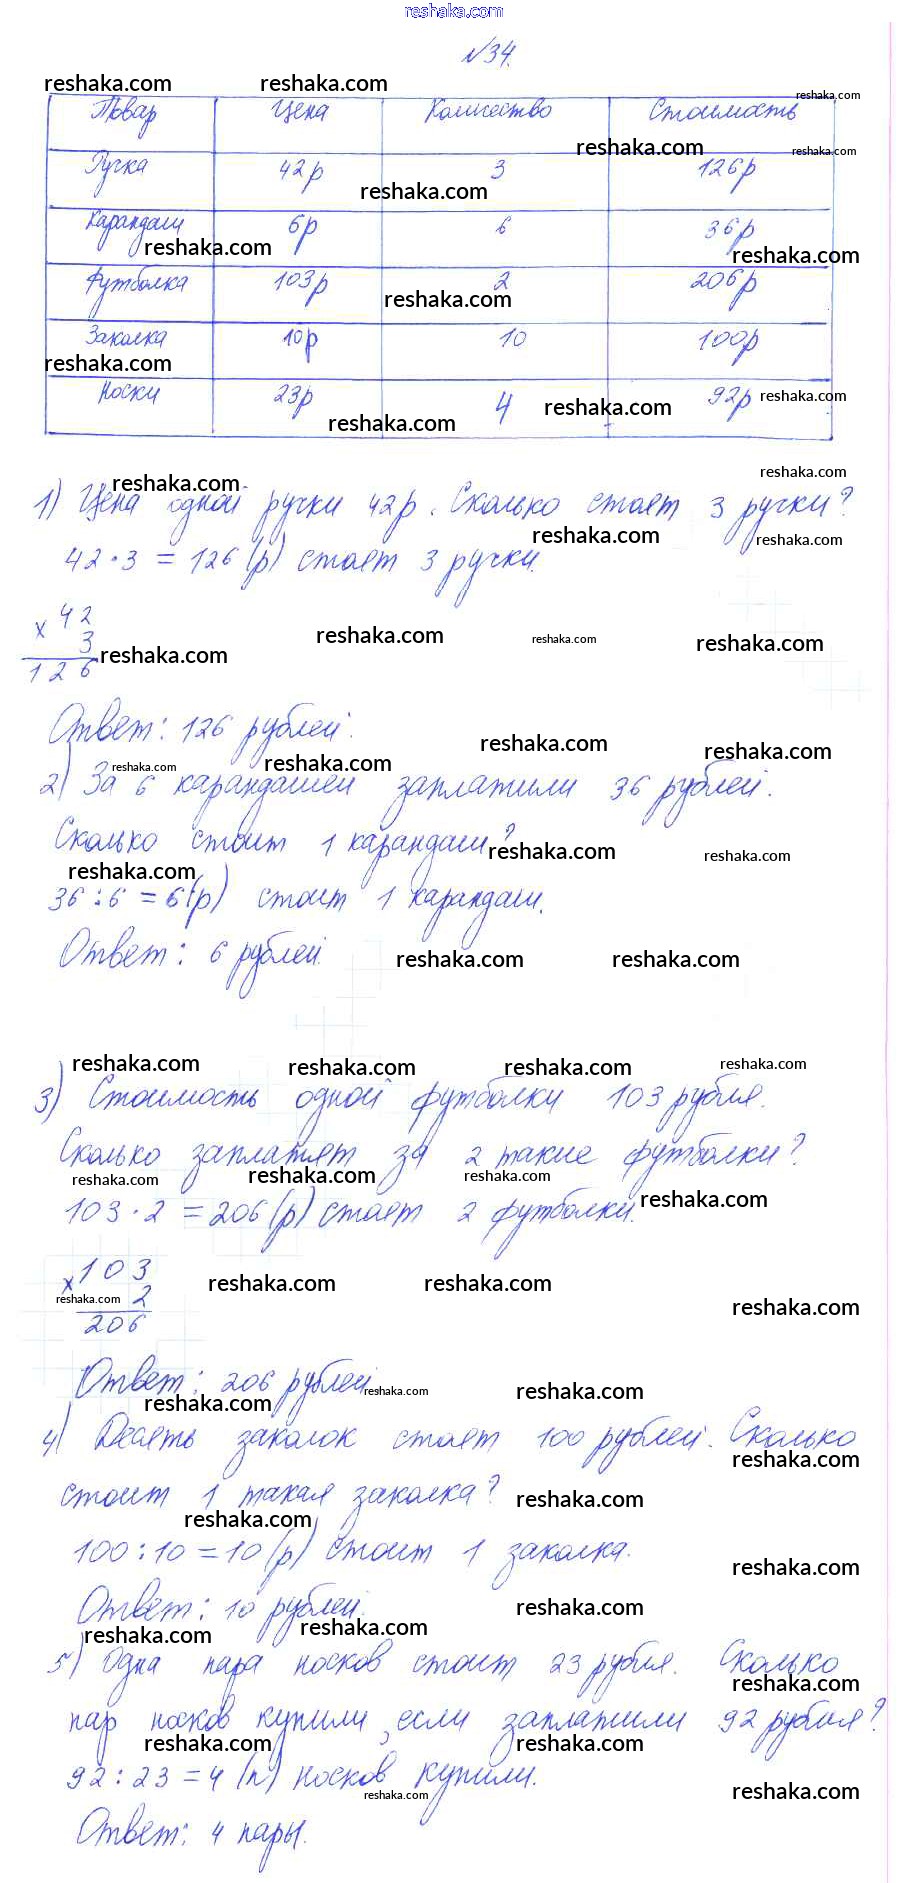 reshaka.com
№34.
Товар Цена Количество Стоимость
Ручка 42р 3 126р
Карандаш 6р 6 36р
Футболка 103р 2 206р
Заколка 10р 10 100р
Носки 23р 4 92р
1) Цена одной ручки 42р. Сколько стоят 3 ручки?
42·3 = 126 (р) стоят 3 ручки.
× 42
3
126
Ответ: 126 рублей.
2) За 6 карандашей заплатили 36 рублей.
Сколько стоит 1 карандаш?
36:6 = 6 (р) стоит 1 карандаш.
Ответ: 6 рублей.
3) Стоимость одной футболки 103 рубля.
Сколько заплатят за 2 такие футболки?
103·2 = 206 (р) стоят 2 футболки.
× 103
2
206
Ответ: 206 рублей
4) Десять заколок стоят 100 рублей. Сколько
стоит 1 такая заколка?
100:10 = 10 (р) стоит 1 заколка.
Ответ: 10 рублей.
5) Одна пара носков стоит 23 рубля. Сколько
пар носков купили, если заплатили 92 рубля?
92:23 = 4 (п) носков купили.
Ответ: 4 пары.